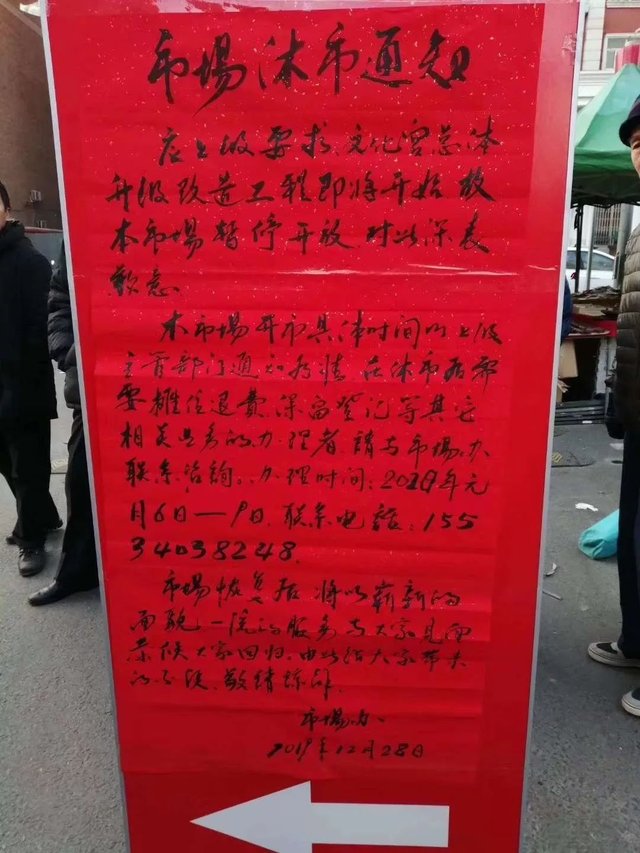 市場休市通知
应上级要求,文化宫总体
升级改造工程即将开始,故
本市場暂停开放,对此深表
歉意。
本市場开市具体时间以上级
主管部门通知为准,在休市后需
要摊位退费、保留登记等其它
相关业务的办理者,請与市場办
联系咨詢。办理时间:2020年元
月6日—9日,联系电話:155
34038248.
市場恢复后,将以崭新的
面貌,一流的服务与大家見面
恭候大家回归,由此给大家带来
的不便,敬请諒解。
市場办
2019年12月28日